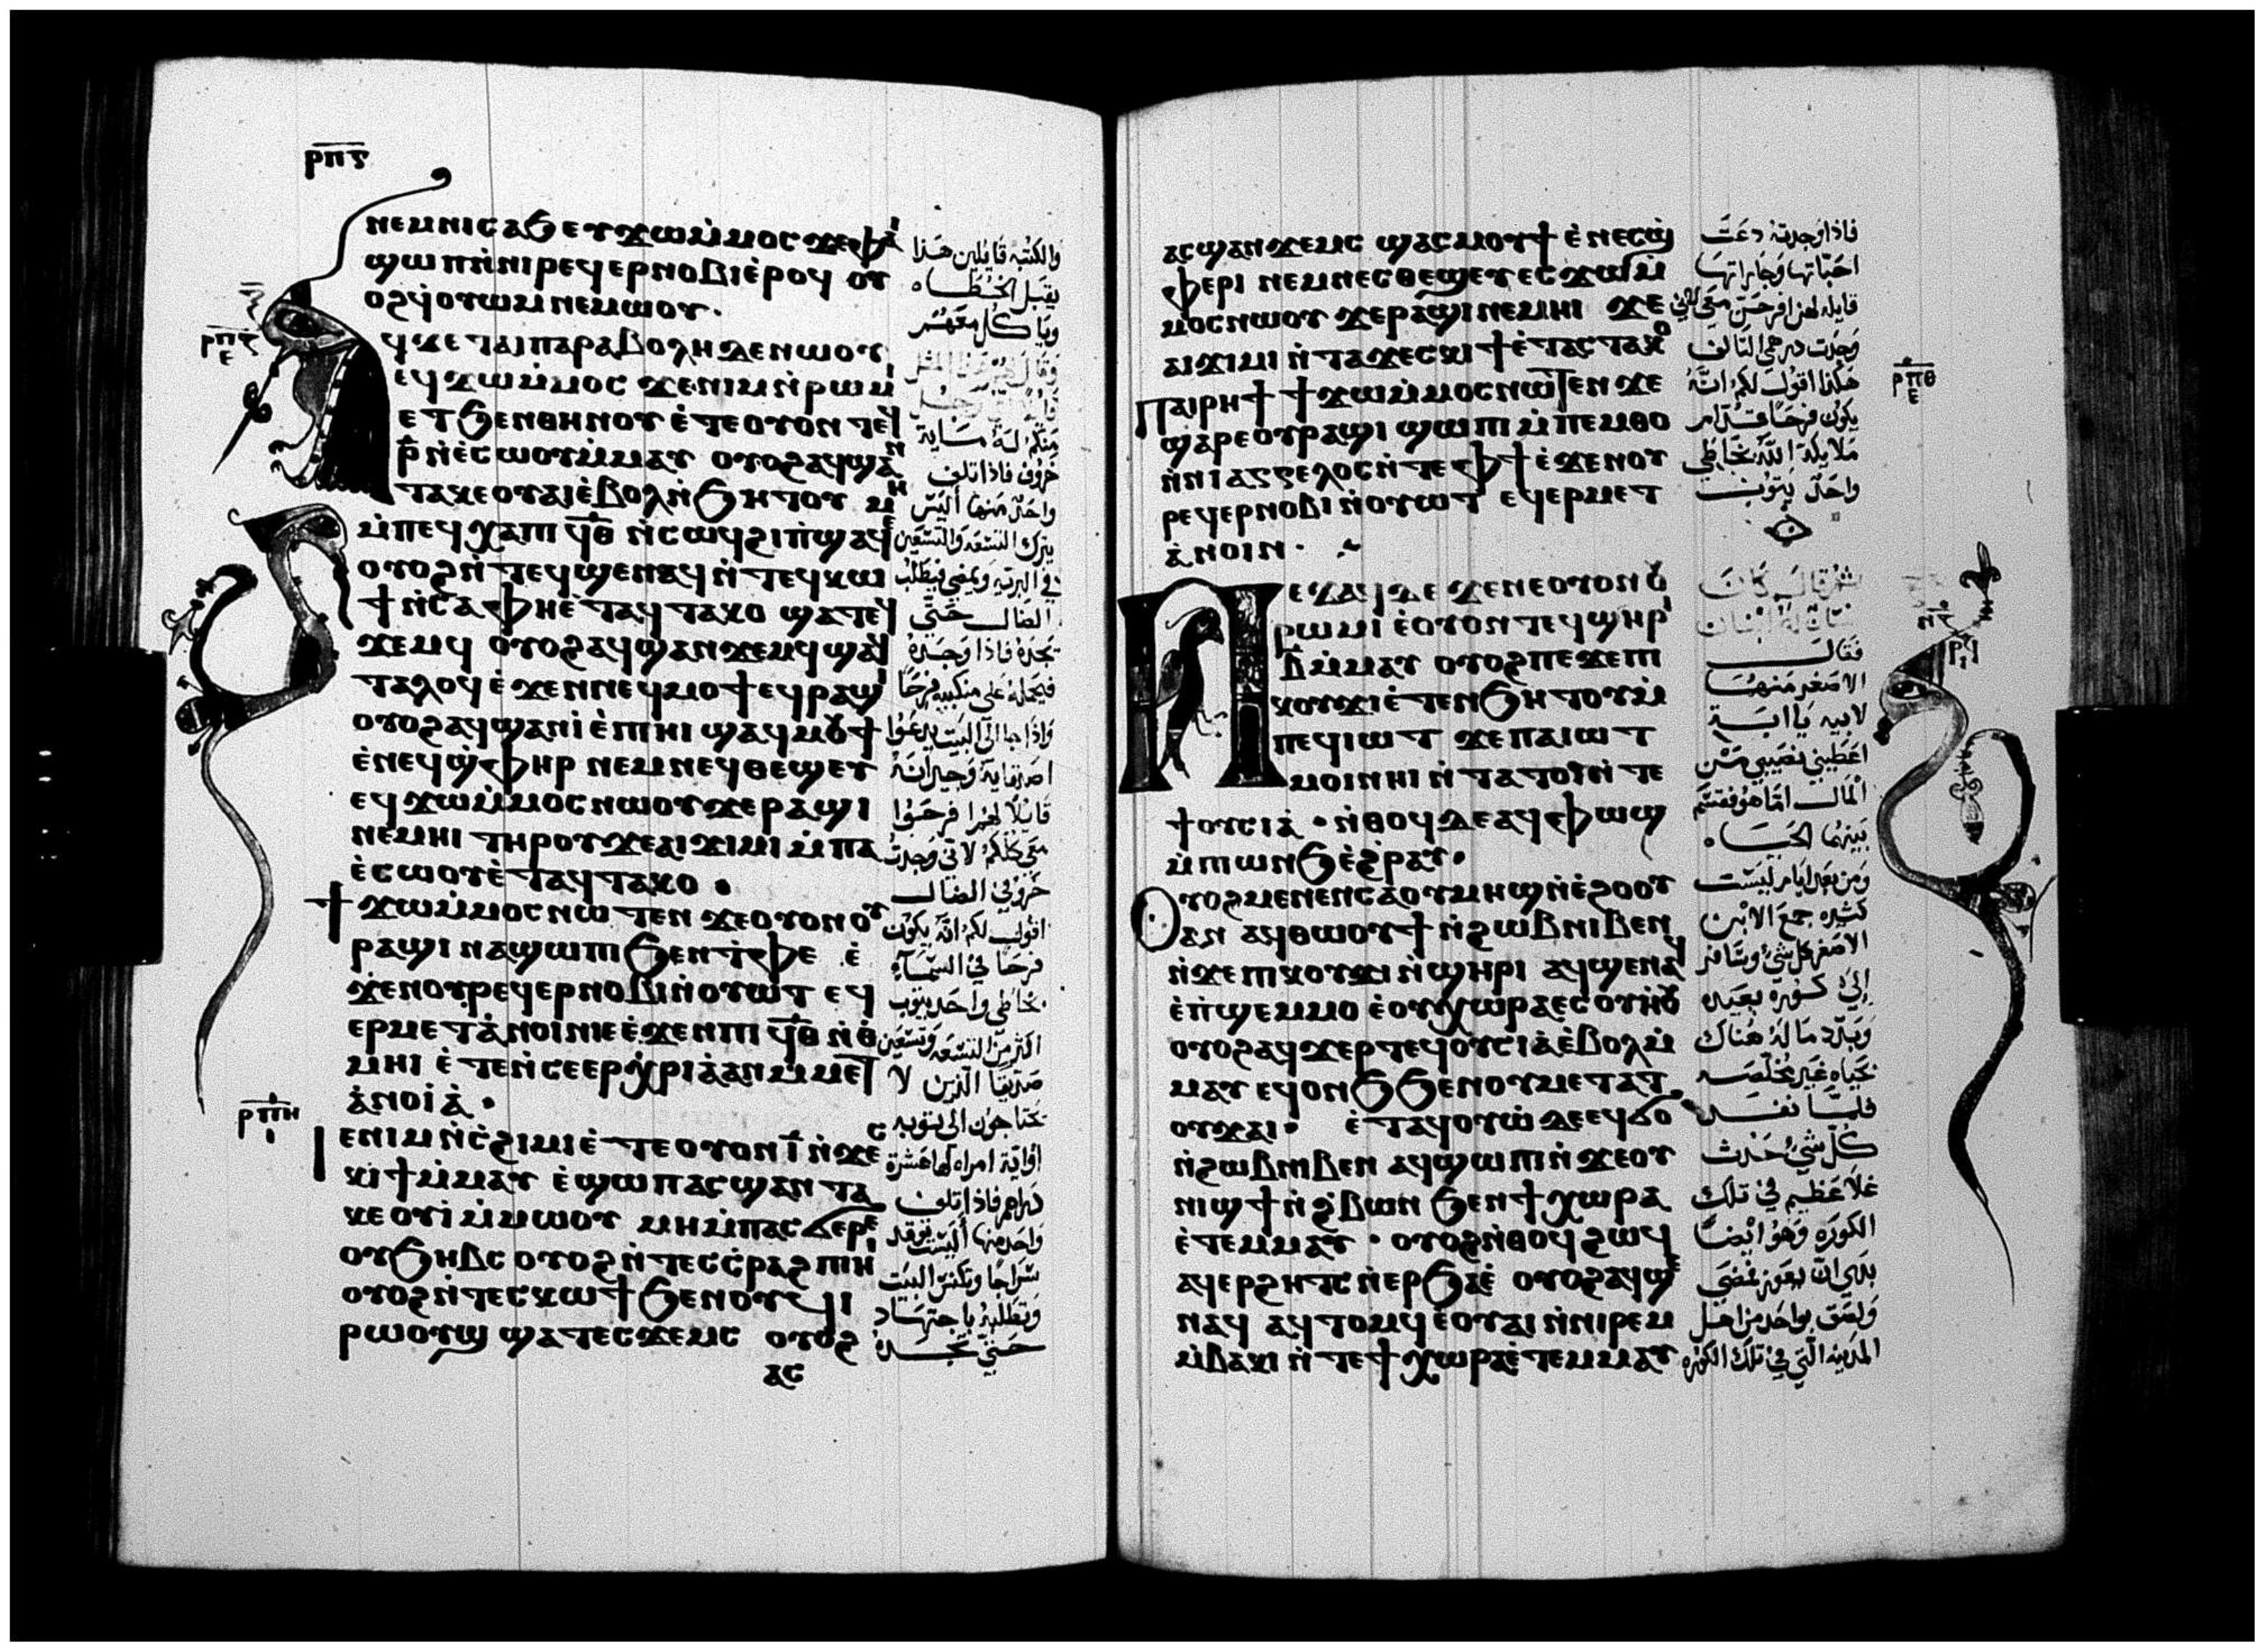 ⲣⲡⲋ
ⲛⲉⲙⲛⲓⲥⲁϧ ⲉⲩϫⲱⲙ̀ⲙⲟⲥ ϫⲉⲫⲁⲓ
ϣⲱⲡⲛ̀ⲛⲓⲣⲉϥⲉⲣⲛⲟⲃⲓⲉ̀ⲣⲟϥ ⲟⲩ
ⲟϩϥ̀ⲟⲩⲱⲙ ⲛⲉⲙⲱⲟⲩ ·
ⲣⲡⲍ
ⲉ
ϥϫⲉ ⲧⲁⲓⲡⲁⲣⲁⲃⲟⲗⲏ ⲇⲉ ⲛⲱⲟⲩ
ⲉϥϫⲱⲙ̀ⲙⲟⲥ ϫⲉⲛⲓⲙ ⲛ̀ⲣⲱⲙⲓ
ⲉⲧϧⲉⲛⲑⲏⲛⲟⲩ ⲉ̀ⲧⲉⲟⲩⲟⲛ ⲧⲉϥ
ⲣ̅ ⲛ̀ⲉ̀ⲥⲱⲟⲩⲙ̀ⲙⲁⲩ ⲟⲩⲟϩⲁϥϣⲁⲛ
ⲧⲁⲕⲉⲟⲩⲁⲓⲉ̀ⲃⲟⲗⲛ̀ϧⲏⲧⲟⲩ ⲙⲏ
ⲙ̀ⲡⲉϥⲭⲁⲡⲓ ϥ̅ⲑ̅ ⲛ̀ⲥⲱϥϩⲓⲡ̀ϣⲁϥⲉ
ⲟⲩⲟϩⲛ̀ⲧⲉϥϣⲉⲛⲁϥ ⲛ̀ⲧⲉϥⲕⲱ
ϯⲛ̀ⲥⲁⲫⲏⲉ̀ⲧⲁϥⲧⲁⲕⲟ ϣⲁⲧⲉϥ
ϫⲉⲙϥ ⲟⲩⲟϩⲁϥϣⲁⲛϫⲉⲙϥ ϣⲁϥ
ⲧⲁⲗⲟϥ ⲉ̀ϫⲉⲛⲛⲉϥⲙⲟϯ ⲉϥⲣⲁϣⲓ
ⲟⲩⲟϩⲁϥϣⲁⲛⲓ̀ ⲉ̀ⲡⲓⲏⲓ ϣⲁϥⲙⲟⲩϯ
ⲉ̀ⲛⲉϥϣ̀ⲫⲏⲣ ⲛⲉⲙⲛⲉϥⲑⲉϣⲉⲩ
ⲉϥϫⲱⲙ̀ⲙⲟⲥ ⲛⲱⲟⲩ ϫⲉⲣⲁϣⲓ
ⲛⲉⲙⲏⲓ ⲧⲏⲣⲟⲩ ϫⲉⲁⲓϫⲓⲙⲓ ⲙ̀ⲡⲁ
ⲉ̀ⲥⲱⲟⲩ ⲉ̀ⲧⲁϥⲧⲁⲕⲟ ·
ϯϫⲱⲙ̀ⲙⲟⲥ ⲛⲱⲧⲉⲛ ϫⲉⲟⲩⲟⲛ ⲟⲩ
ⲣⲁϣⲓ ⲛⲁϣⲱⲡⲓ ϧⲉⲛⲧ̀ⲫⲉ ⲉ̀
ϫⲉⲛⲟⲩⲣⲉϥⲉⲣⲛⲟⲃⲓⲛ̀ⲟⲩⲱⲧ ⲉϥ
ⲉⲣⲙⲉⲧⲁ̀ⲛⲟⲓⲛ ⲓⲉ ⲉ̀ϫⲉⲛⲡⲓ ϥ̅ⲑ̅ ⲛ̀ⲑ̀
ⲙⲏⲓ ⲉ̀ⲧⲉⲛ̀ⲥⲉⲉⲣⲭ̀ⲣⲓⲁ̀ⲁⲛ ⲙ̀ⲙⲉⲧ
ⲁ̀ⲛⲟⲓⲁ̀ ·
ⲣⲡⲏ
ⲓ
ⲓⲉ ⲛⲓⲙ ⲛ̀ⲥ̀ϩⲓⲙⲓ ⲉ̀ⲧⲉⲟⲩⲟⲛ ⲓ̅ ⲛ̀ϫⲉⲥ
ⲕⲓϯ ⲙ̀ⲙⲁⲩ ⲉ̀ϣⲱⲡ ⲁⲥϣⲁⲛⲧⲁ
ⲕⲉⲟⲩⲓ̀ ⲙ̀ⲙⲱⲟⲩ ⲙⲏ ⲙ̀ⲡⲁⲥϭⲉⲣⲉ
ⲟⲩϧⲏⲃⲥ ⲟⲩⲟϩ ⲛ̀ⲧⲉⲥⲥ̀ⲣⲁϩ ⲡⲓⲏⲓ
ⲟⲩⲟϩ ⲛ̀ⲧⲉⲥⲕⲱϯ ϧⲉⲛⲟⲩϥⲓ
ⲣⲱⲟⲩϣ ϣⲁⲧⲉⲥϫⲉⲙⲥ ⲟⲩⲟϩ
ⲁⲥ
والكتبه قايلين هذا
يقبل الخطاه
وياكل معهم
منكم له ماية
خروف فاذا اتلف
واحد منها اليس
يترك التسعه والتسعين
في البريه ويمضي فيطلب
الضال حتى
يجده فاذا وجده
فيحمله على منكبيه فرحًا
واذا جا الى البيت يدعوا
اصدقايه وجيرانه
قايلًا لهم افرحوا
معي كلكم لاني وجدت
خروفي الضال
اقول لكم انه يكون
فرحا في السمآء
بخاطي واحد يتوب
اكثر من التسعه وتسعين
صديقًا الذين لا
يحتاجون الى توبه
اوايّة امراه لها عشرة
دراهم فاذا اتلف
واحد منها اليست توقد
سراجا وتكنس البيت
وتطلبه باجتهاد
حتى تجده
ⲁⲥϣⲁⲛϫⲉⲙⲥ ϣⲁⲥⲙⲟⲩϯ ⲉ̀ⲛⲉⲥϣ̀
ⲫⲉⲣⲓ ⲛⲉⲙⲛⲉⲥⲑⲉϣⲉⲩ ⲉⲥϫⲱⲙ̀
ⲙⲟⲥ ⲛⲱⲟⲩ ϫⲉⲣⲁϣⲓ ⲛⲉⲙⲏⲓ ϫⲉ
ⲁⲓϫⲓⲙⲓ ⲛ̀ⲧⲁϫⲉⲥⲕⲓϯ ⲉ̀ⲧⲁⲥⲧⲁⲕⲟ
ⲣⲡⲑ
ⲉ
ⲡⲁⲓⲣⲏϯ ϯϫⲱⲙ̀ⲙⲟⲥ ⲛⲱⲧⲉⲛ ϫⲉ
ϣⲁⲣⲉⲟⲩⲣⲁϣⲓ ϣⲱⲡⲓ ⲙ̀ⲡⲉⲙⲑⲟ
ⲛ̀ⲛⲓⲁⲅⲅⲉⲗⲟⲥ ⲛ̀ⲧⲉⲫϯ ⲉ̀ϫⲉⲛⲟⲩ
ⲣⲉϥⲉⲣⲛⲟⲃⲓ ⲛ̀ⲟⲩⲱⲧ ⲉϥⲉⲣⲙⲉⲧ
ⲁ̀ⲛⲟⲓⲛ ·
ⲡⲉϫⲁϥ ⲇⲉ ϫⲉ ⲛⲉⲟⲩⲟⲛ ⲟⲩ
ⲣⲱⲙⲓ ⲉ̀ⲟⲩⲟⲛ ⲧⲉϥϣⲏⲣⲓ
ⲃ̅ ⲙ̀ⲙⲁⲩ ⲟⲩⲟϩ ⲡⲉϫⲉ ⲡⲓ
ⲕⲟⲩϫⲓ ⲉ̀ⲧⲉⲛϧⲏⲧⲟⲩ ⲙ̀
ⲡⲉϥⲓⲱⲧ ϫⲉ ⲡⲁⲓⲱⲧ
ⲙⲟⲓ ⲛⲏⲓ ⲛ̀ⲧⲁⲧⲟⲓ ⲛ̀ⲧⲉ
ϯⲟⲩⲥⲓⲁ̀ · ⲛ̀ⲑⲟϥ ⲇⲉ ⲁϥⲫⲱϣ
ⲙ̀ⲡⲓⲱⲛϧ ⲉ̀ϩ̀ⲣⲁⲩ ·
ⲟⲩⲟϩ ⲙⲉⲛⲉⲛⲥⲁⲟⲩⲙⲏϣ ⲛ̀ⲉ̀ϩⲟⲟⲩ
ⲁⲛ ⲁϥⲑⲱⲟⲩϯ ⲛ̀ϩⲱⲃ ⲛⲓⲃⲉⲛ
ⲛ̀ϫⲉ ⲡⲓⲕⲟⲩϫⲓ ⲛ̀ϣⲏⲣⲓ ⲁϥϣⲉⲛⲁϥ
ⲉ̀ⲡ̀ϣⲉⲙⲙⲟ ⲉ̀ⲟⲩⲭⲱⲣⲁ ⲉⲥⲟⲩⲏⲟⲩ
ⲟⲩⲟϩ ⲁϥϫⲉⲣ ⲧⲉϥⲟⲩⲥⲓⲁ̀ ⲉ̀ⲃⲟⲗ ⲙ̀
ⲙⲁⲩ ⲉϥⲟⲛϧ ϧⲉⲛⲟⲩⲙⲉⲧⲁⲧ
ⲟⲩϫⲁⲓ · ⲉ̀ⲧⲁϥⲟⲩⲱ̀ ⲇⲉ ⲉϥϭⲟ
ⲛ̀ϩⲱⲃ ⲛⲓⲃⲉⲛ ⲁϥϣⲱⲡⲓ ⲛ̀ϫⲉⲟⲩ
ⲛⲓϣϯ ⲛ̀ϩ̀ⲃⲱⲛ ϧⲉⲛϯⲭⲱⲣⲁ
ⲉ̀ⲧⲉⲙⲙⲁⲩ · ⲟⲩⲟϩ ⲛ̀ⲑⲟϥ ϩⲱϥ
ⲁϥⲉⲣϩⲏⲧⲥ ⲛ̀ⲉⲣϧⲁⲉ̀ ⲟⲩⲟϩ ⲁϥϣⲉ
ⲛⲁϥ ⲁϥⲧⲟⲙϥ ⲉ̀ⲟⲩⲁⲓ ⲛ̀ⲛⲓⲣⲉⲙ
ⲙ̀ⲃⲁⲕⲓ ⲛ̀ⲧⲉ ϯⲭⲱⲣⲁ ⲉ̀ⲧⲉⲙⲙⲁⲩ
فاذا وجدته دعت
احبّاتها وجاراتها
قايله لهن افرحن معي لاني
وجدت درهمي التالف
هكذا اقول لكم انه
يكون فرحا قدام
ملايكة الله بخاطي
واحد يتوب
فقال
الاصغر منهما
لابيه يا ابة
اعطيني نصيبي من
المال اما هو فقسم
بينهما الحياه
ومن بعد ايام ليست
كثيره جمع الابن
الاصغر كل شي وسافر
الى كوره بعيده
وبدد ماله هناك
بحياه غير مخلصه
فلما نفد
كل شي حدث
غلا عظيم في تلك
الكوره وهو ايضا
بدى ان يعوز فمضى
ولصق بواحد من اهل
المدينه التي في تلك الكوره